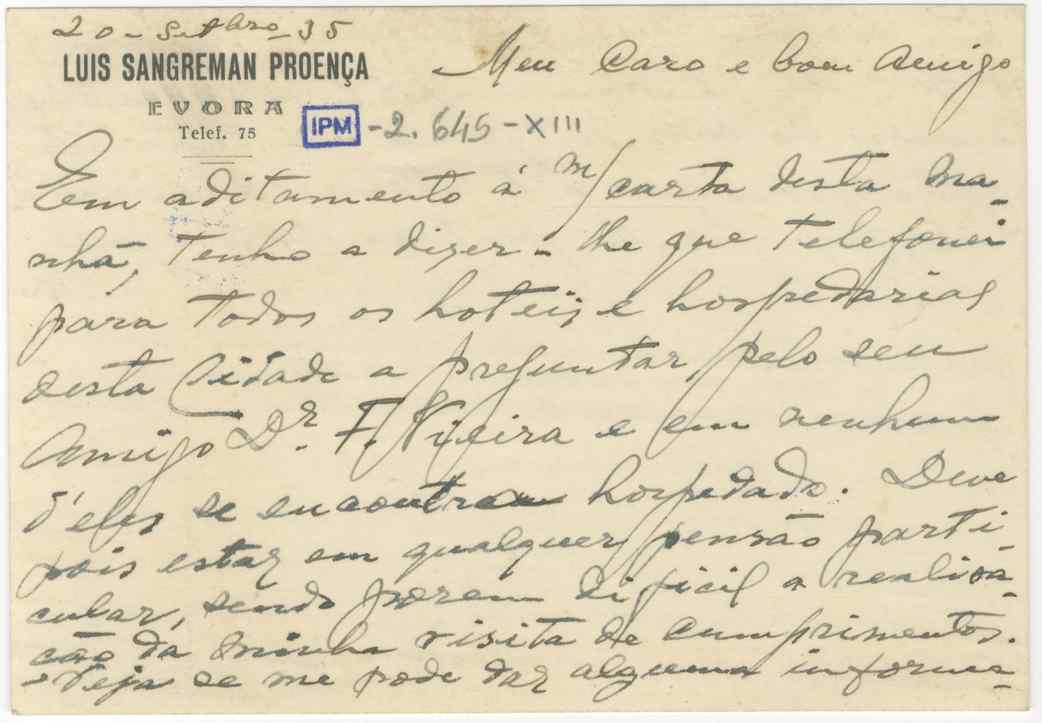 20-Setbro-35
LUIS SANGREMAN PROENÇA
EVORA
Telef. 75
IPM-2.645-XIII
Meu Caro e bom Amigo
Em aditamento á m/carta desta ma-
nhã, tenho a dizer-lhe que telefonei
para todos os hoteis e hospedarias
desta Cidade a preguntar pelo seu
Amigo Dr. F. Vieira e em nenhum
d'eles se encontra hospedado. Deve
pois estar em qualquer pensão parti-
cular, sendo porem dificil a realisa-
ção da minha visita de cumprimentos.
Veja se me pode dar alguma informa-